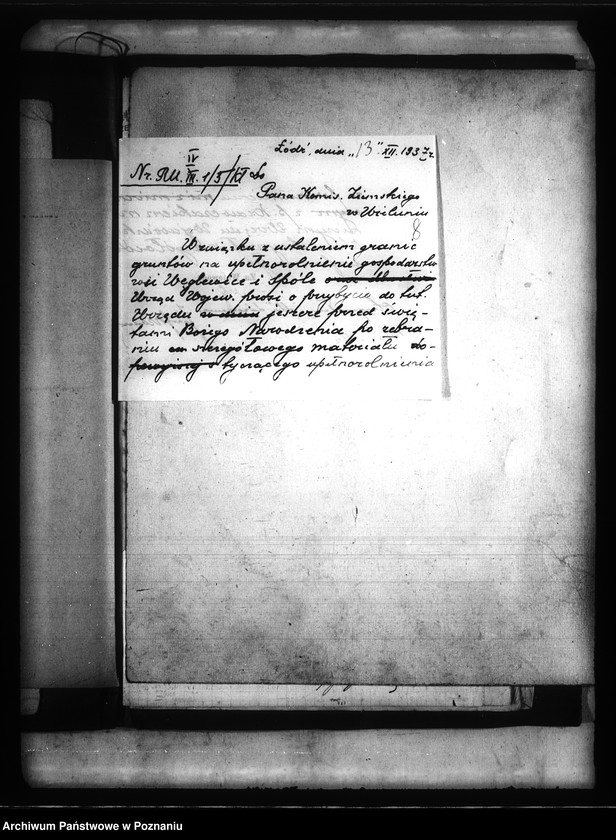 Łódź, dnia „13" XII. 1937 r.
Nr. RU. IV/III. 1/5/ Do
Pana Komis. Ziemskiego
w Wieluniu
8
W związku z ustaleniem granic
gruntów na upełnorolnienie gospodarstw
wsi Węglewice i Spóle oraz
Urząd Wojew. prosi o przybycie do tut.
Urzędu w dniu jeszcze przed świę-
tami Bożego Narodzenia po zebra-
niu szczegółowego materiału do-
tyczącego upełnorolnienia
Archiwum Państwowe w Poznaniu